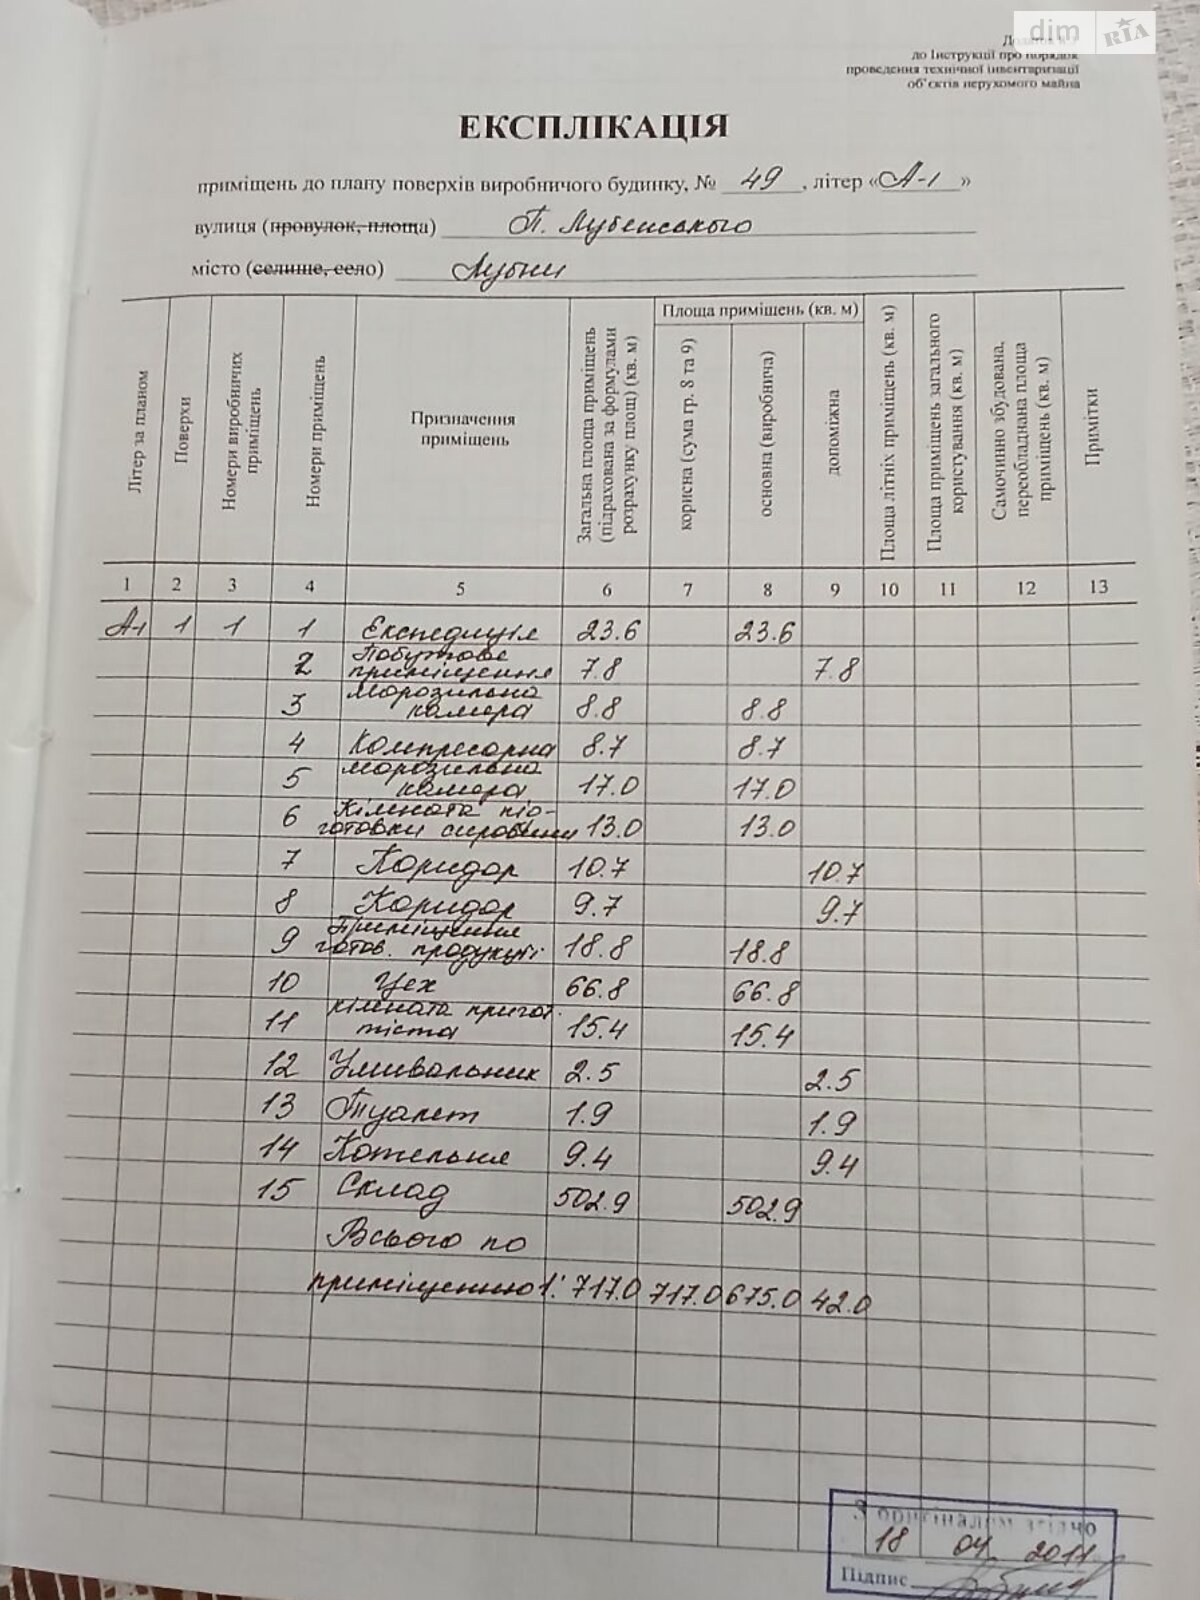 dim RIA
до Інструкції про порядок
проведення технічної інвентаризації
об'єктів нерухомого майна
ЕКСПЛІКАЦІЯ
приміщень до плану поверхів виробничого будинку, № 49, літер «А-1»
вулиця (провулок, площа) П. Лубенського
місто (селище, село) Лубни
Літер за планом
Поверхи
Номери виробничих приміщень
Номери приміщень
Призначення приміщень
Загальна площа приміщень (підрахована за формулами розрахунку площ) (кв. м)
Площа приміщень (кв. м)
корисна (сума гр. 8 та 9)
основна (виробнича)
допоміжна
Площа літніх приміщень (кв. м)
Площа приміщень загального користування (кв. м)
Самочинно збудована, переобладнана площа приміщень (кв. м)
Примітки
1 2 3 4 5 6 7 8 9 10 11 12 13
А-1 1 1 1 Експедиція 23.6 23.6
2 Побутове приміщення 7.8 7.8
3 Морозильна камера 8.8 8.8
4 Компресорна 8.7 8.7
5 Морозильна камера 17.0 17.0
6 Кімната підготовки сировини 13.0 13.0
7 Коридор 10.7 10.7
8 Коридор 9.7 9.7
9 Приміщення готов. продукції 18.8 18.8
10 Цех 66.8 66.8
11 Кімната пригот. тіста 15.4 15.4
12 Умивальник 2.5 2.5
13 Туалет 1.9 1.9
14 Котельня 9.4 9.4
15 Склад 502.9 502.9
Всього по
приміщенню 1: 717.0 717.0 675.0 42.0
З оригіналом згідно
18 04 2011
Підпис